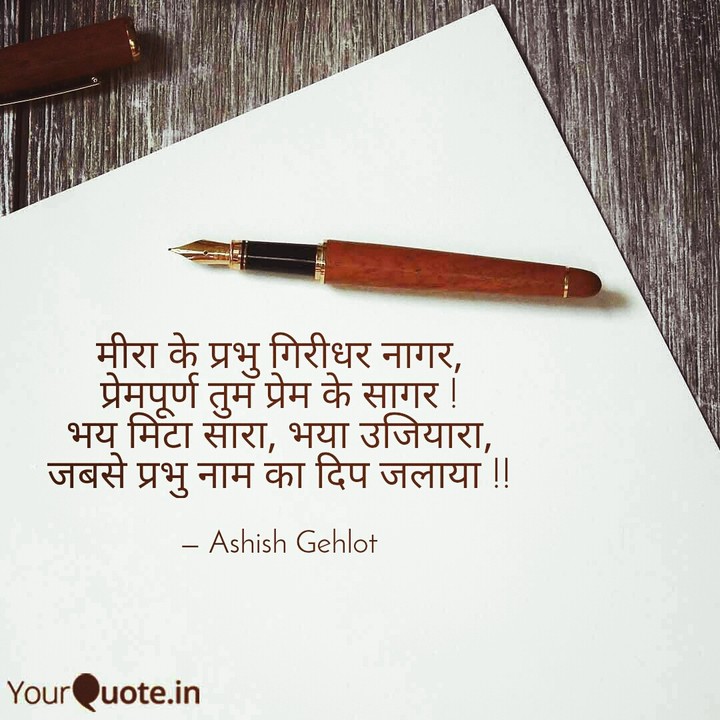 मीरा के प्रभु गिरीधर नागर,
प्रेमपूर्ण तुम प्रेम के सागर !
भय मिटा सारा, भया उजियारा,
जबसे प्रभु नाम का दिप जलाया !!
– Ashish Gehlot
YourQuote.in